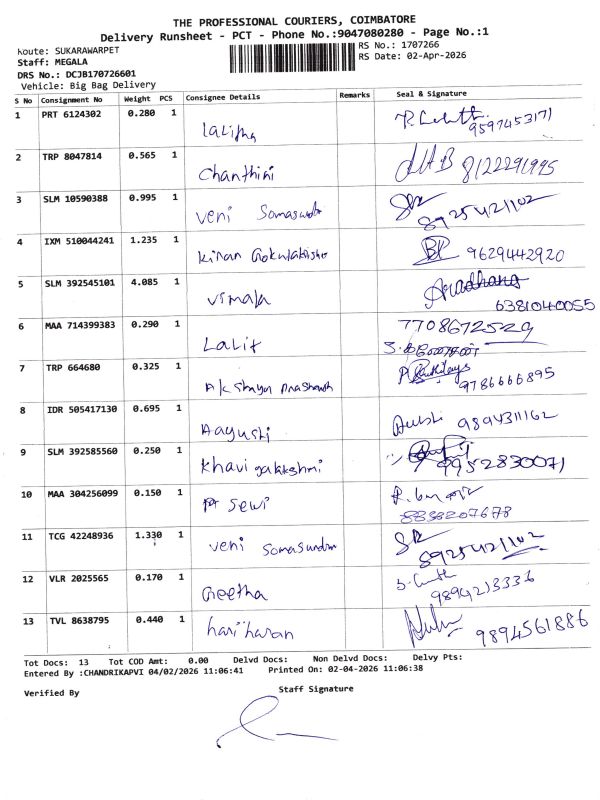 THE PROFESSIONAL COURIERS, COIMBATORE
Delivery Runsheet - PCT - Phone No.:9047080280 - Page No.:1
Route: SUKARAWARPET
RS No.: 1707266
Staff: MEGALA
RS Date: 02-Apr-2026
DRS No.: DCJB170726601
Vehicle: Big Bag Delivery
S No Consignment No Weight PCS Consignee Details Remarks Seal & Signature
1 PRT 6124302 0.280 1 Lalitha 9597453171
2 TRP 8047814 0.565 1 Chanthini 8122291995
3 SLM 10590388 0.995 1 Veni Somasundr 8925421102
4 IXM 510044241 1.235 1 Kiran Gokulakrishn 9629442920
5 SLM 392545101 4.085 1 Vimala Aradhana 6381040055
6 MAA 714399383 0.290 1 Lalit 7708672529
7 TRP 664680 0.325 1 Akshaya Prashanth 9786666895
8 IDR 505417130 0.695 1 Aayushi 9894311162
9 SLM 392585560 0.250 1 Khavi 9952830071
10 MAA 304256099 0.150 1 Selvi 8838207678
11 TCG 42248936 1.330 1 Veni Somasundra 8925421102
12 VLR 2025565 0.170 1 Geetha 9894213336
13 TVL 8638795 0.440 1 hariharan 9894561886
Tot Docs: 13 Tot COD Amt: 0.00 Delvd Docs: Non Delvd Docs: Delvy Pts:
Entered By :CHANDRIKAPVI 04/02/2026 11:06:41 Printed On: 02-04-2026 11:06:38
Verified By Staff Signature